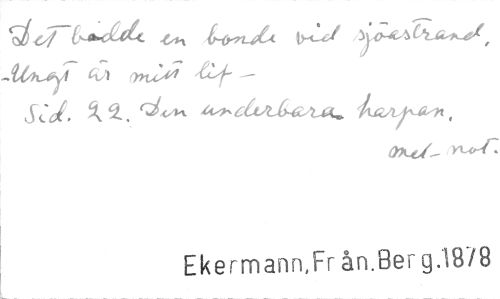 Det bodde en bonde vid sjöastrand,
-Ungt är mitt lif-
Sid. 22. Den underbara harpan.
mel- not.
Ekermann, Från.Berg.1878